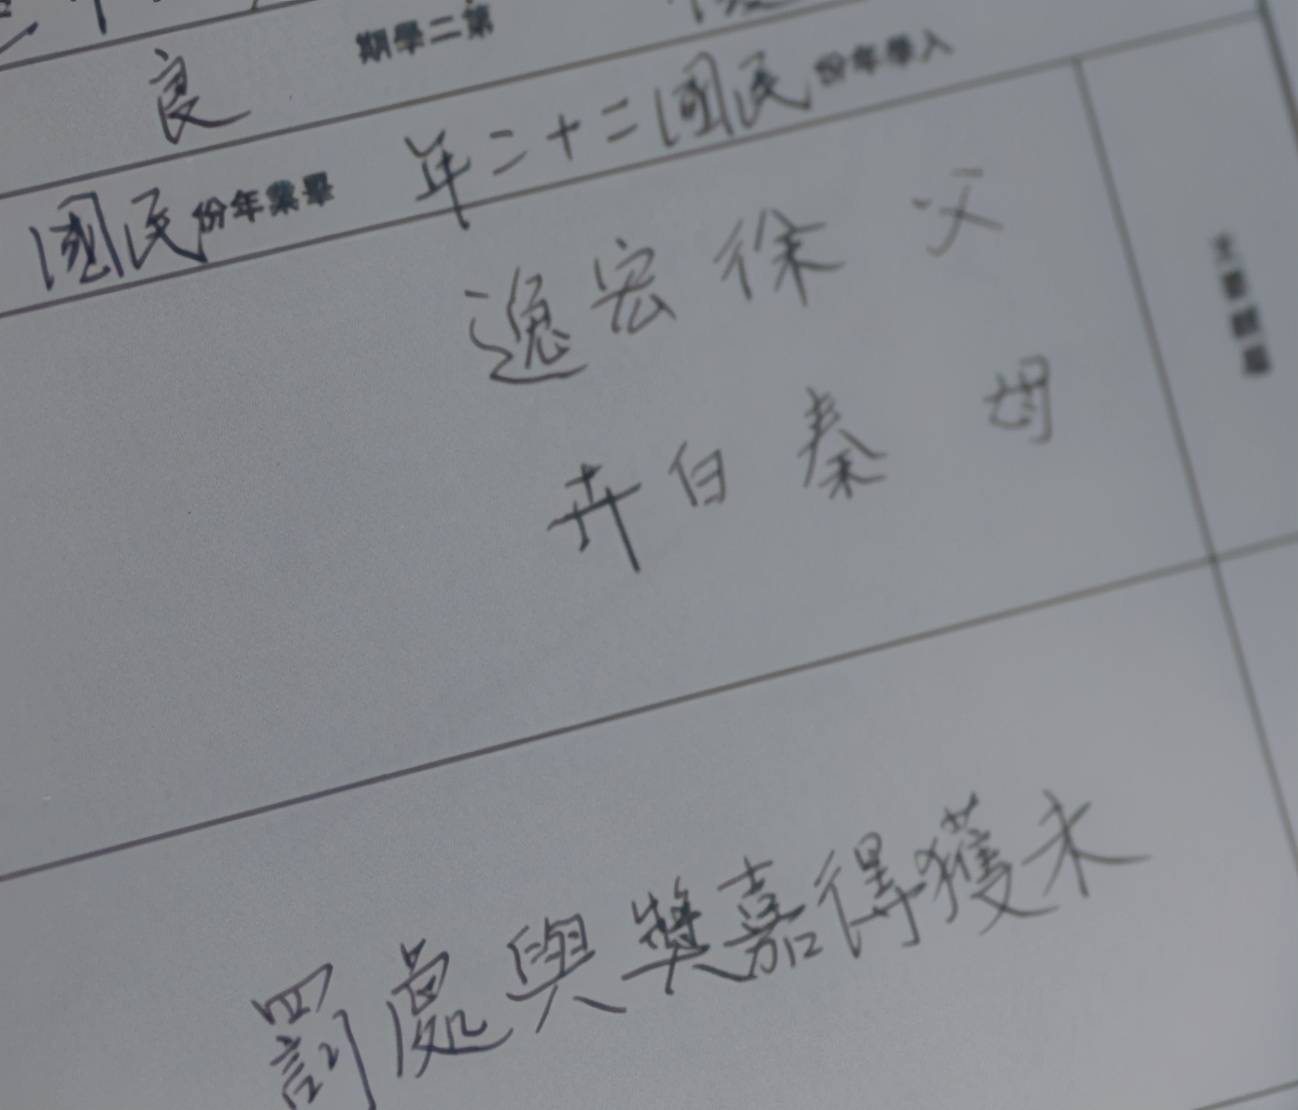 第二學期 良
入學年份 民國二十二年 畢業年份 民國
主要親屬
父 徐宏逸
母 秦白卉
未獲得嘉獎與處罰